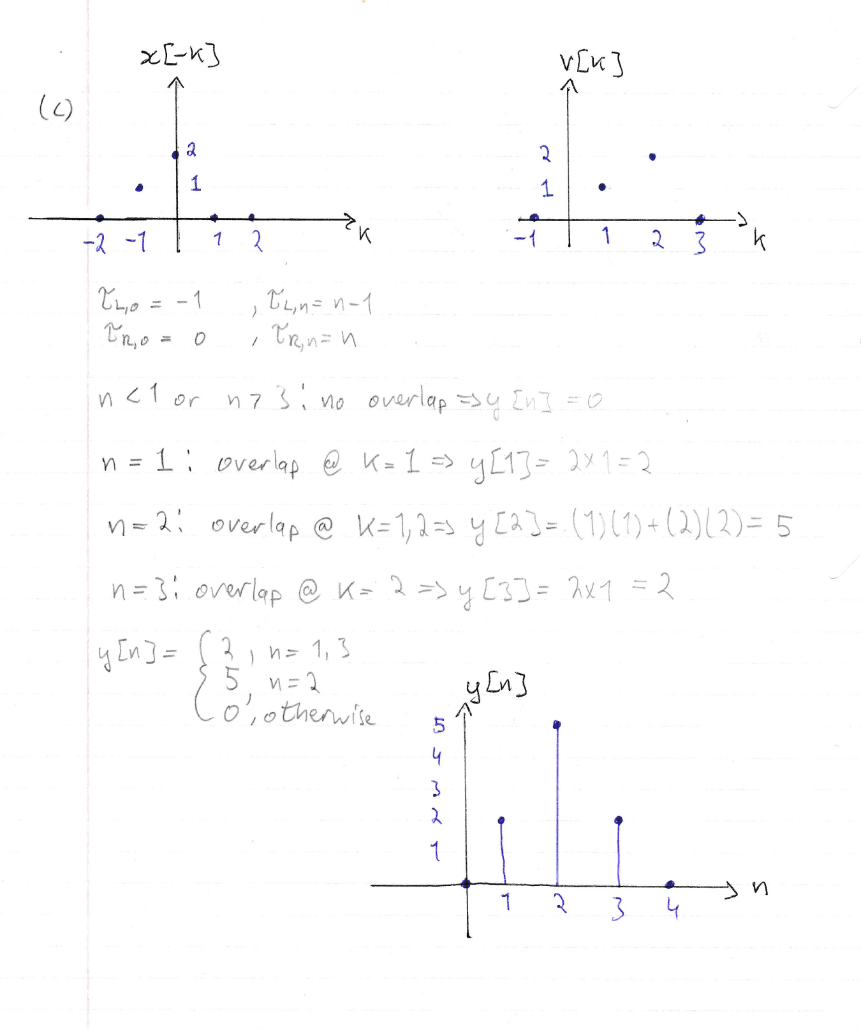 x[-k]
v[k]
(c)
2
1
-2 -1 1 2 k
2
1
-1 1 2 3 k
τL,0 = -1 , τL,n = n-1
τR,0 = 0 , τR,n = n
n < 1 or n > 3 : no overlap => y[n] = 0
n = 1 : overlap @ k=1 => y[1] = 2×1 = 2
n = 2 : overlap @ k=1,2 => y[2] = (1)(1)+(2)(2) = 5
n = 3 : overlap @ k= 2 => y[3] = 2×1 = 2
y[n] = { 2 , n= 1,3
5 , n=2
0 , otherwise
y[n]
5
4
3
2
1
1 2 3 4 n